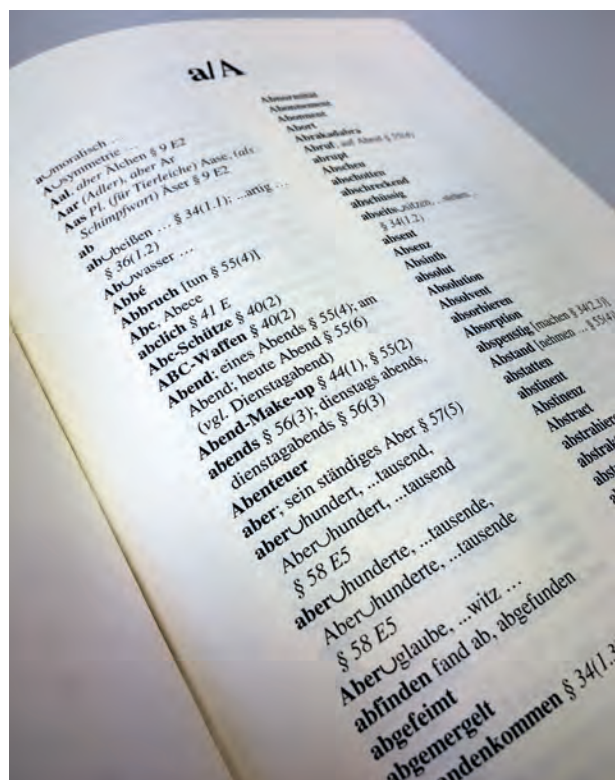 a/A
a‿moralisch ...
A‿symmetrie ...
Aal, aber Älchen § 9 E2
Aar (Adler), aber Ar
Aas Pl. (für Tierleiche) Aase, (als
Schimpfwort) Äser § 9 E2
ab
ab‿beißen ... § 34(1.1); ...artig ...
§ 36(1.2)
Ab‿wasser ...
Abbé
Abbruch [tun § 55(4)]
Abc, Abece
abelich § 41 E
Abc-Schütze § 40(2)
ABC-Waffen § 40(2)
Abend; eines Abends § 55(4); am
Abend; heute Abend § 55(6)
(vgl. Dienstagabend)
Abend-Make-up § 44(1), § 55(2)
abends § 56(3); dienstags abends,
dienstagabends § 56(3)
Abenteuer
aber; sein ständiges Aber § 57(5)
aber‿hundert, ...tausend,
Aber‿hundert, ...tausend
§ 58 E5
aber‿hunderte, ...tausende,
Aber‿hunderte, ...tausende
§ 58 E5
Aber‿glaube, ...witz ...
abfinden fand ab, abgefunden
abgefeimt
abgemergelt
ndenkommen § 34(1.3
Abnormität
Abonnement
Abonnent
Abort
Abrakadabra
Abruf, auf Abruf § 55(4)
abrupt
Abscheu
abschotten
abschreckend
abschüssig
abseits‿sitzen, ...stehen
§ 34(1.2)
absent
Absenz
Absinth
absolut
Absolution
Absolvent
absorbieren
Absorption
abspenstig [machen § 34(2.3)]
Abstand [nehmen ... § 55(4)
abstatten
abstinent
Abstinenz
Abstract
abstrahiere
abstrah